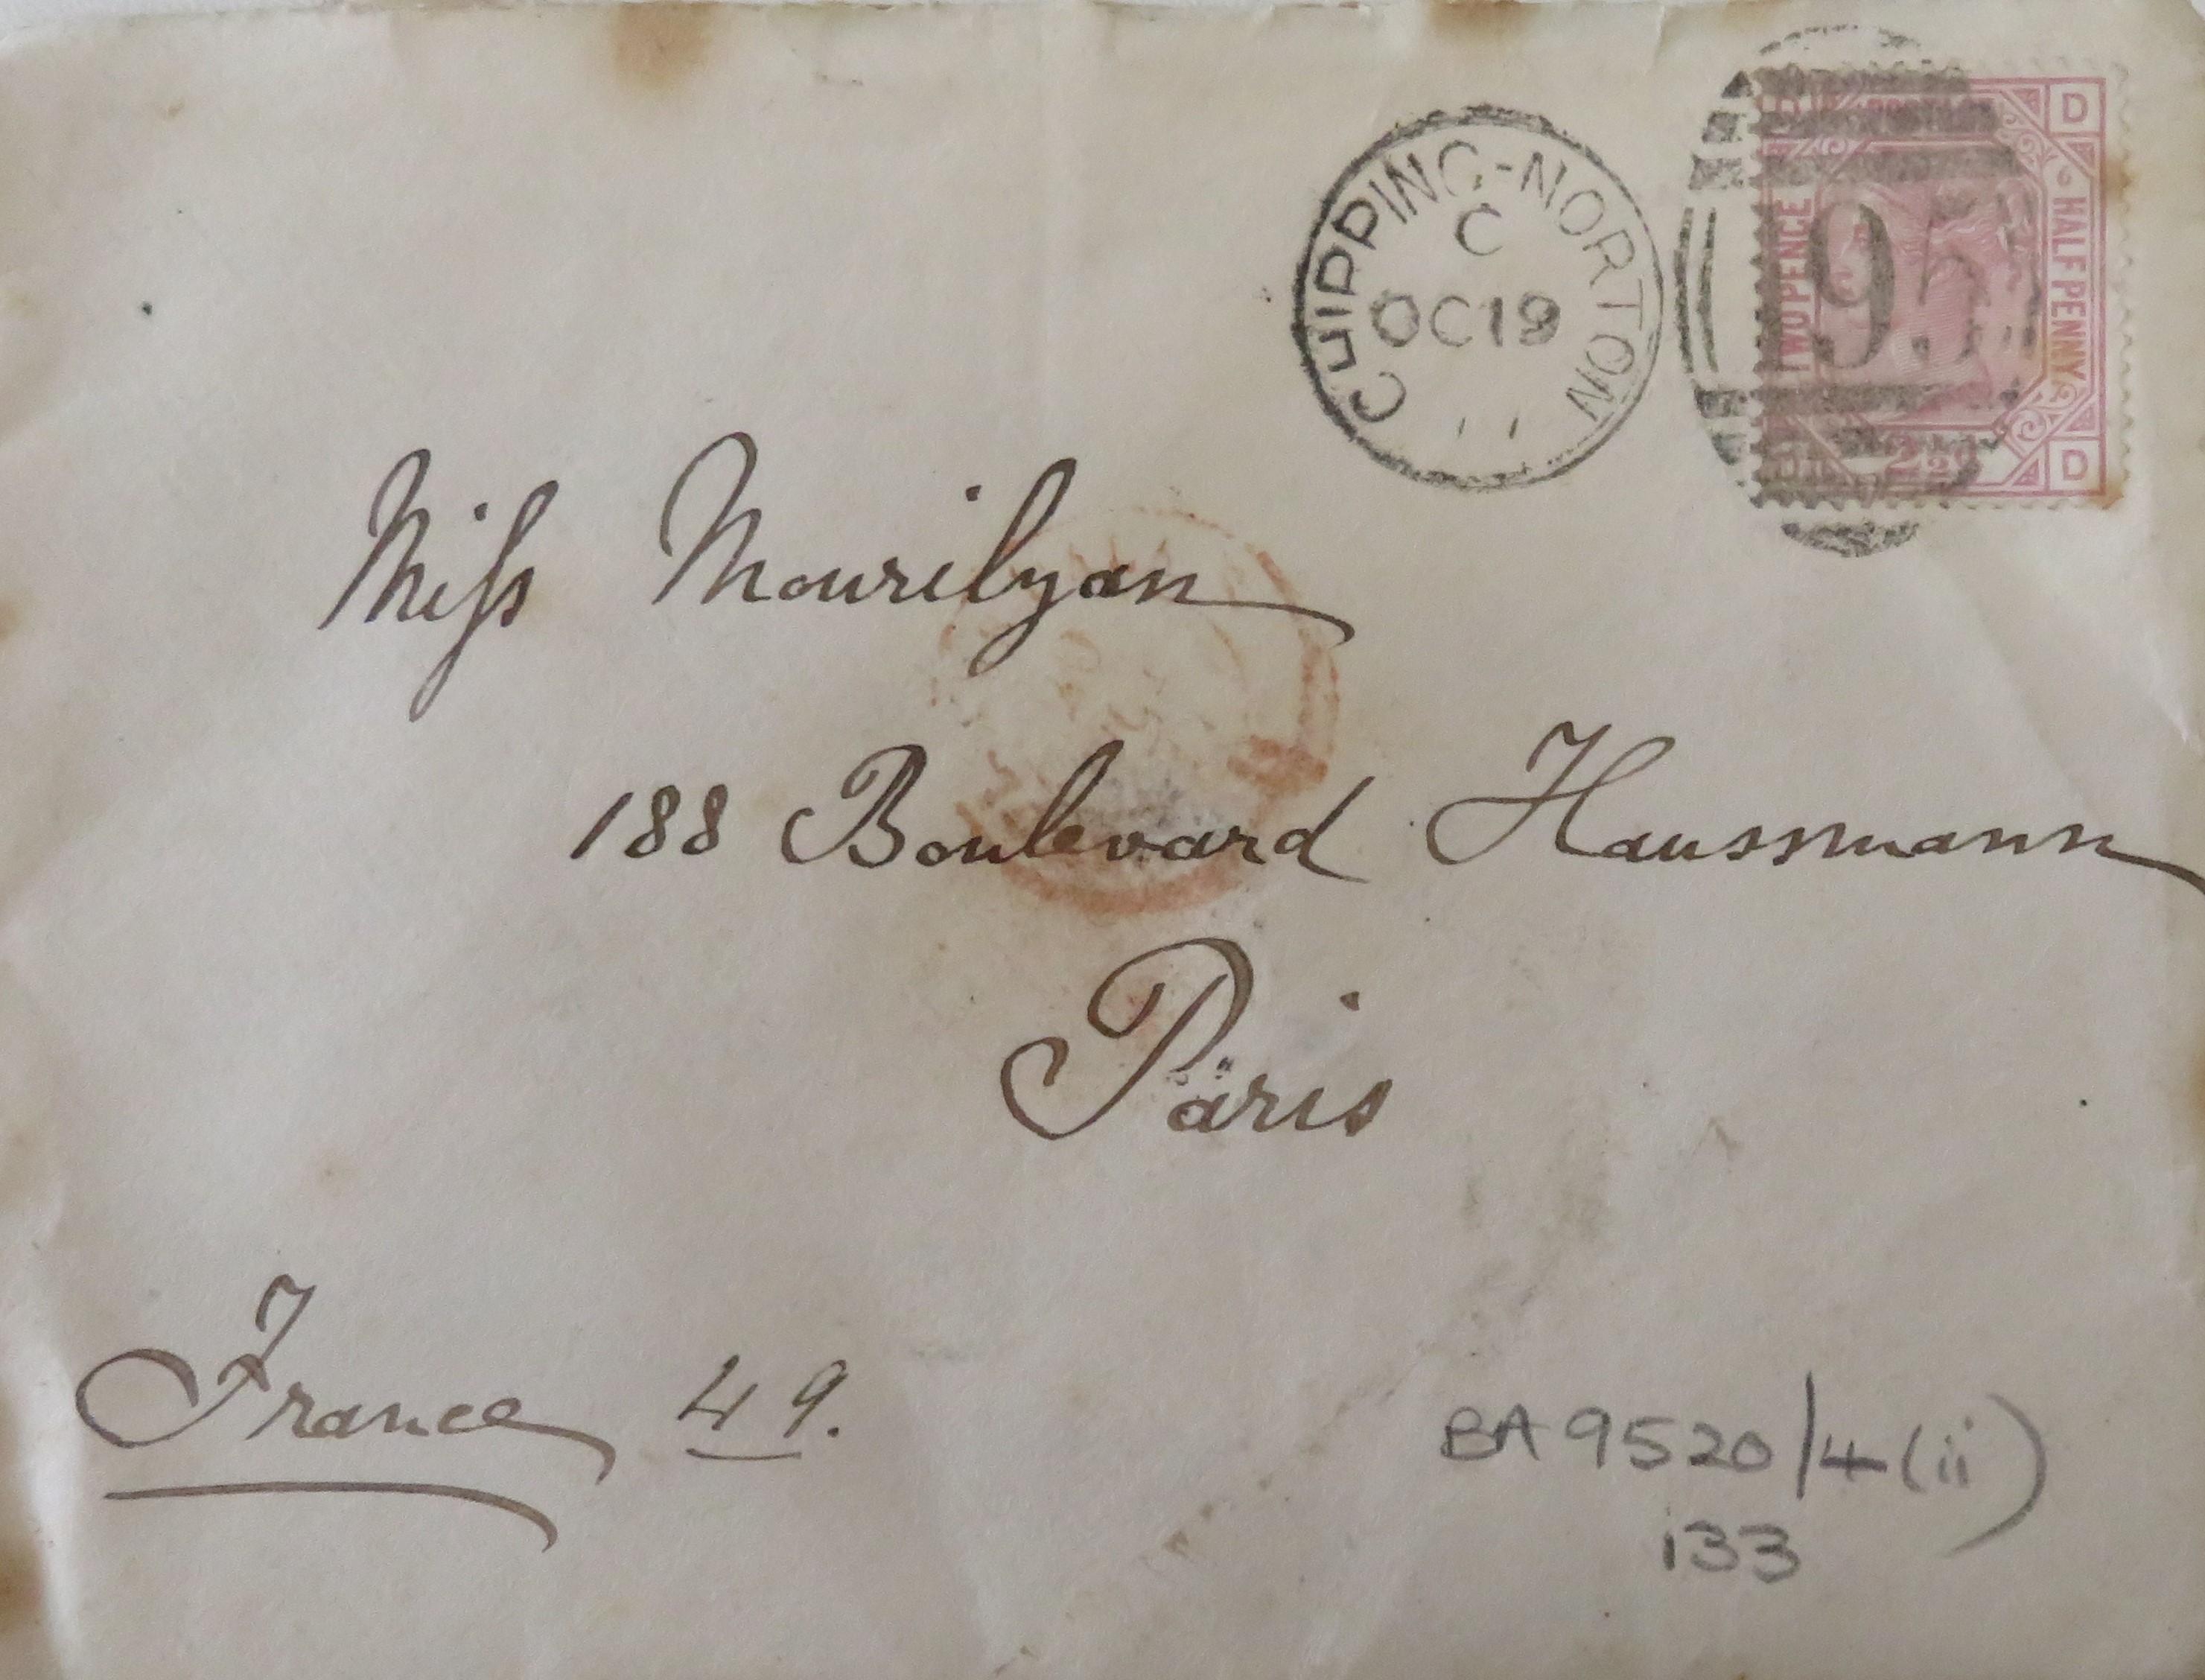 CHIPPING-NORTON
C
OC 19
POSTAGE
D
TWO PENCE
HALF PENNY
2½
D
Miss Mourilyan
188 Boulevard Haussmann
Paris
France 49.
BA 9520/4(ii)
133